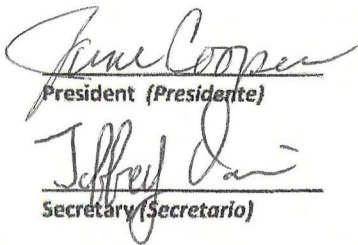 Jane Cooper
President (Presidente)
Jeffrey
Secretary (Secretario)